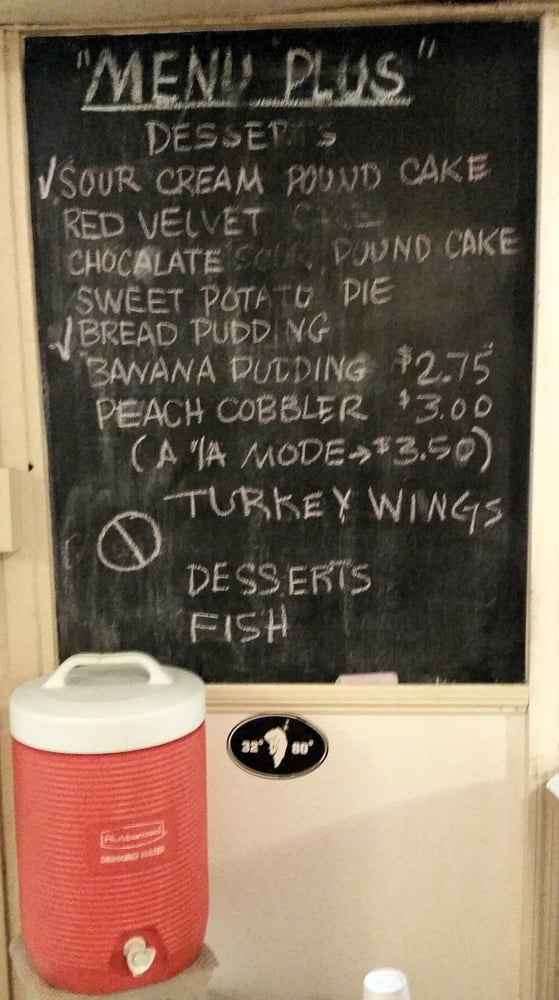 "MENU PLUS"
DESSERTS
✓SOUR CREAM POUND CAKE
RED VELVET
CHOCALATE SOUR POUND CAKE
SWEET POTATO PIE
✓BREAD PUDDING
BANANA PUDDING $2.75
PEACH COBBLER $3.00
(A'LA MODE→$3.50)
TURKEY WINGS
DESSERTS
FISH
32° 80°
Rubbermaid
DRINKING WATER